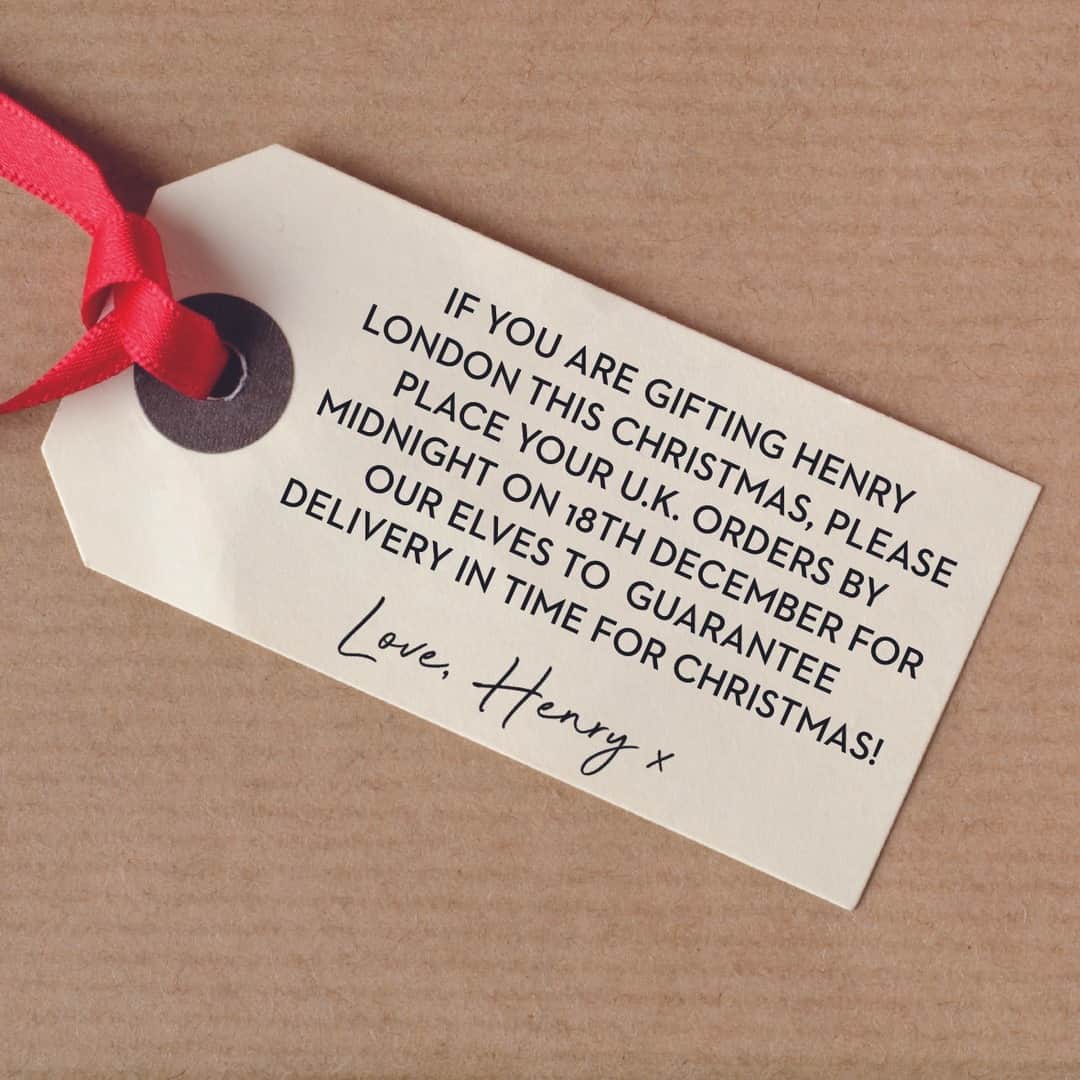 IF YOU ARE GIFTING HENRY
LONDON THIS CHRISTMAS, PLEASE
PLACE YOUR U.K. ORDERS BY
MIDNIGHT ON 18TH DECEMBER FOR
OUR ELVES TO GUARANTEE
DELIVERY IN TIME FOR CHRISTMAS!
Love, Henry x